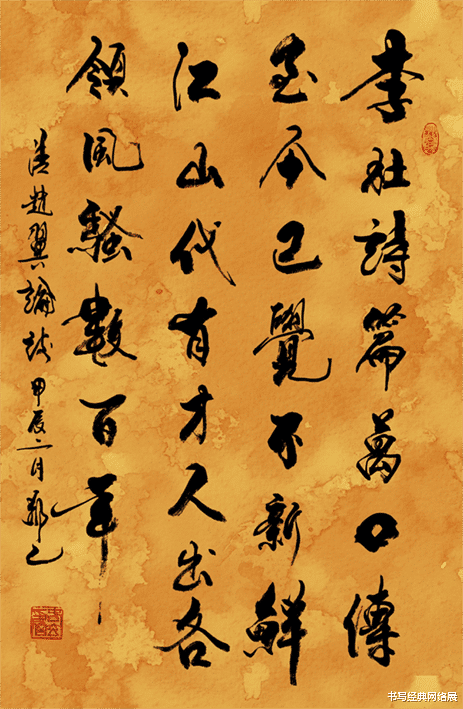 李杜詩篇萬口傳
至今已覺不新鮮
江山代有才人出各
領風騷數百年
清趙翼論詩甲辰二月
书写经典网络展